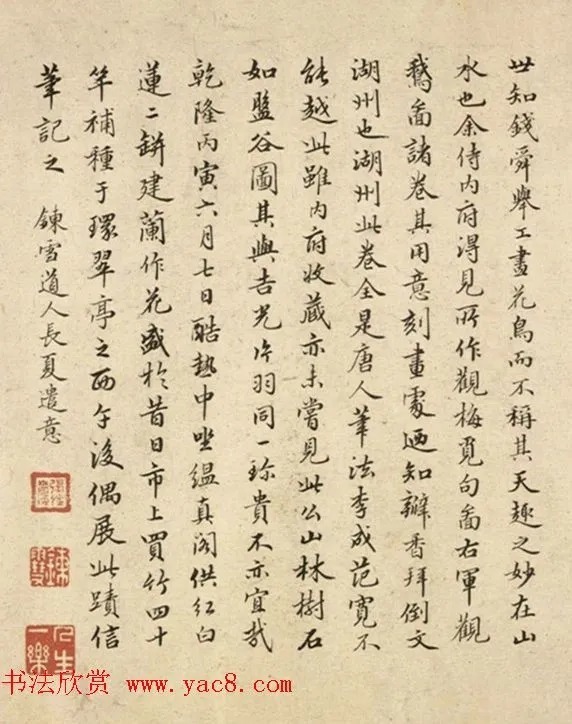 世知錢舜舉工畫花鳥而不稱其天趣之妙在山
水也余侍內府得見所作觀梅覓句圖右軍觀
鵞圖諸卷其用意刻畫處迺知瓣香拜倒文
湖州也湖州此卷全是唐人筆法李成范寬不
能越此雖內府收藏亦未嘗見此公山林樹石
如盤谷圖其與吉光片羽同一珍貴不亦宜哉
乾隆丙寅六月七日酷熱中坐緼真閣供紅白
蓮二缾建蘭作花盛於昔日市上買竹四十
竿補種于環翠亭之西午後偶展此蹟信
筆記之 鍊雪道人長夏遣意
人生一樂
书法欣赏 www.yac8.com